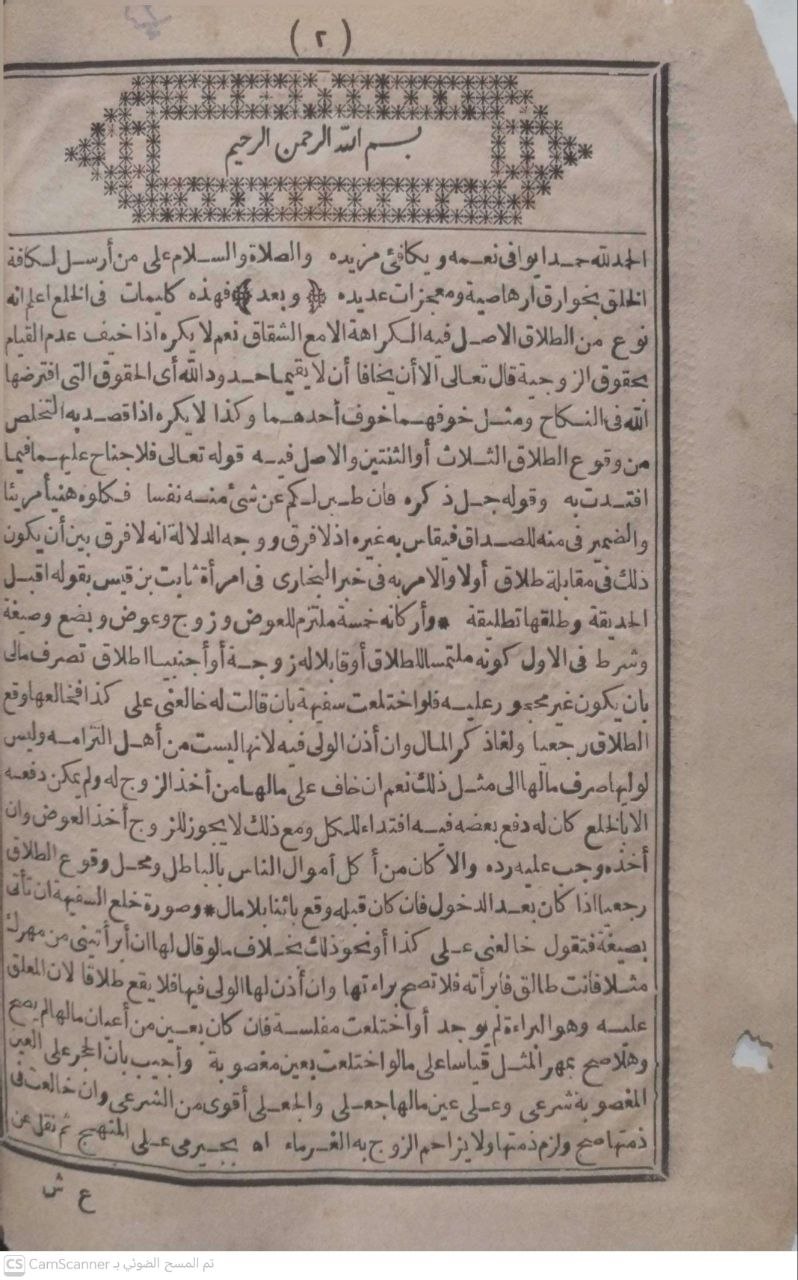 (٢)
بسم الله الرحمن الرحيم
الحمد لله حمدا يوافي نعمه ويكافئ مزيده والصلاة والسلام على من أرسل لكافة
الخلق بخوارق ارهاصية ومعجزات عديده ﴿وبعد﴾ فهذه كليمات في الخلع اعلم انه
نوع من الطلاق الاصل فيه الكراهة الا مع الشقاق نعم لا يكره اذا خيف عدم القيام
بحقوق الزوجية قال تعالى الا أن يخافا أن لا يقيما حدود الله أى الحقوق التي افترضها
الله في النكاح ومثل خوفهما خوف أحدهما وكذا لا يكره اذا قصد به التخلص
من وقوع الطلاق الثلاث أو الثنتين والاصل فيه قوله تعالى فلا جناح عليهما فيما
افتدت به وقوله جل ذكره فان طبن لكم عن شئ منه نفسا فكلوه هنيأ مريئا
والضمير في منه للصداق فيقاس به غيره اذ لا فرق ووجه الدلالة انه لا فرق بين أن يكون
ذلك في مقابلة طلاق أولا والامر به في خبر البخارى في امرأة ثابت بن قيس بقوله اقبل
الحديقة وطلقها تطليقة * وأركانه خمسة ملتزم للعوض وزوج وعوض وبضع وصيغة
وشرط في الاول كونه ملتمسا للطلاق أو قابلا له زوجة أو أجنبيا اطلاق تصرف مالى
بان يكون غير محجور عليه فلو اختلعت سفيهة بان قالت له خالعنى على كذا فخالعها وقع
الطلاق رجعيا ولغاذكر المال وان أذن الولى فيه لانها ليست من أهل التزامه وليس
لوليها صرف مالها الى مثل ذلك نعم ان خاف على مالها من أخذ الزوج له ولم يمكن دفعه
الا بالخلع كان له دفع بعضه فيه افتداء للكل ومع ذلك لا يجوز للزوج أخذ العوض وان
أخذه وجب عليه رده والا كان من أكل أموال الناس بالباطل ومحل وقوع الطلاق
رجعيا اذا كان بعد الدخول فان كان قبله وقع بائنا بلا مال * وصورة خلع السفيهة ان تأتى
بصيغة فتقول خالعنى على كذا أو نحو ذلك بخلاف مالو قال لها ان أبرأتينى من مهرك
مثلا فانت طالق فابرأته فلا تصح براءتها وان أذن لها الولى فيها فلا يقع طلاقا لان المعلق
عليه وهو البراءة لم يوجد أو اختلعت مفلسة فان كان بعين من أعيان مالها لم يصح
وهلا صح بمهر المثل قياسا على مالو اختلعت بعين مغصوبة وأجيب بان الحجر على العين
المغصوبة شرعى وعلى عين مالها جعلى والجعلى أقوى من الشرعى وان خالعت فى
ذمتها صح ولزم ذمتها ولا يزاحم الزوج به الغرماء اه بجيرمى على المنهج ثم نقل عن
ع ش
CS CamScanner تم المسح الضوئي بـ